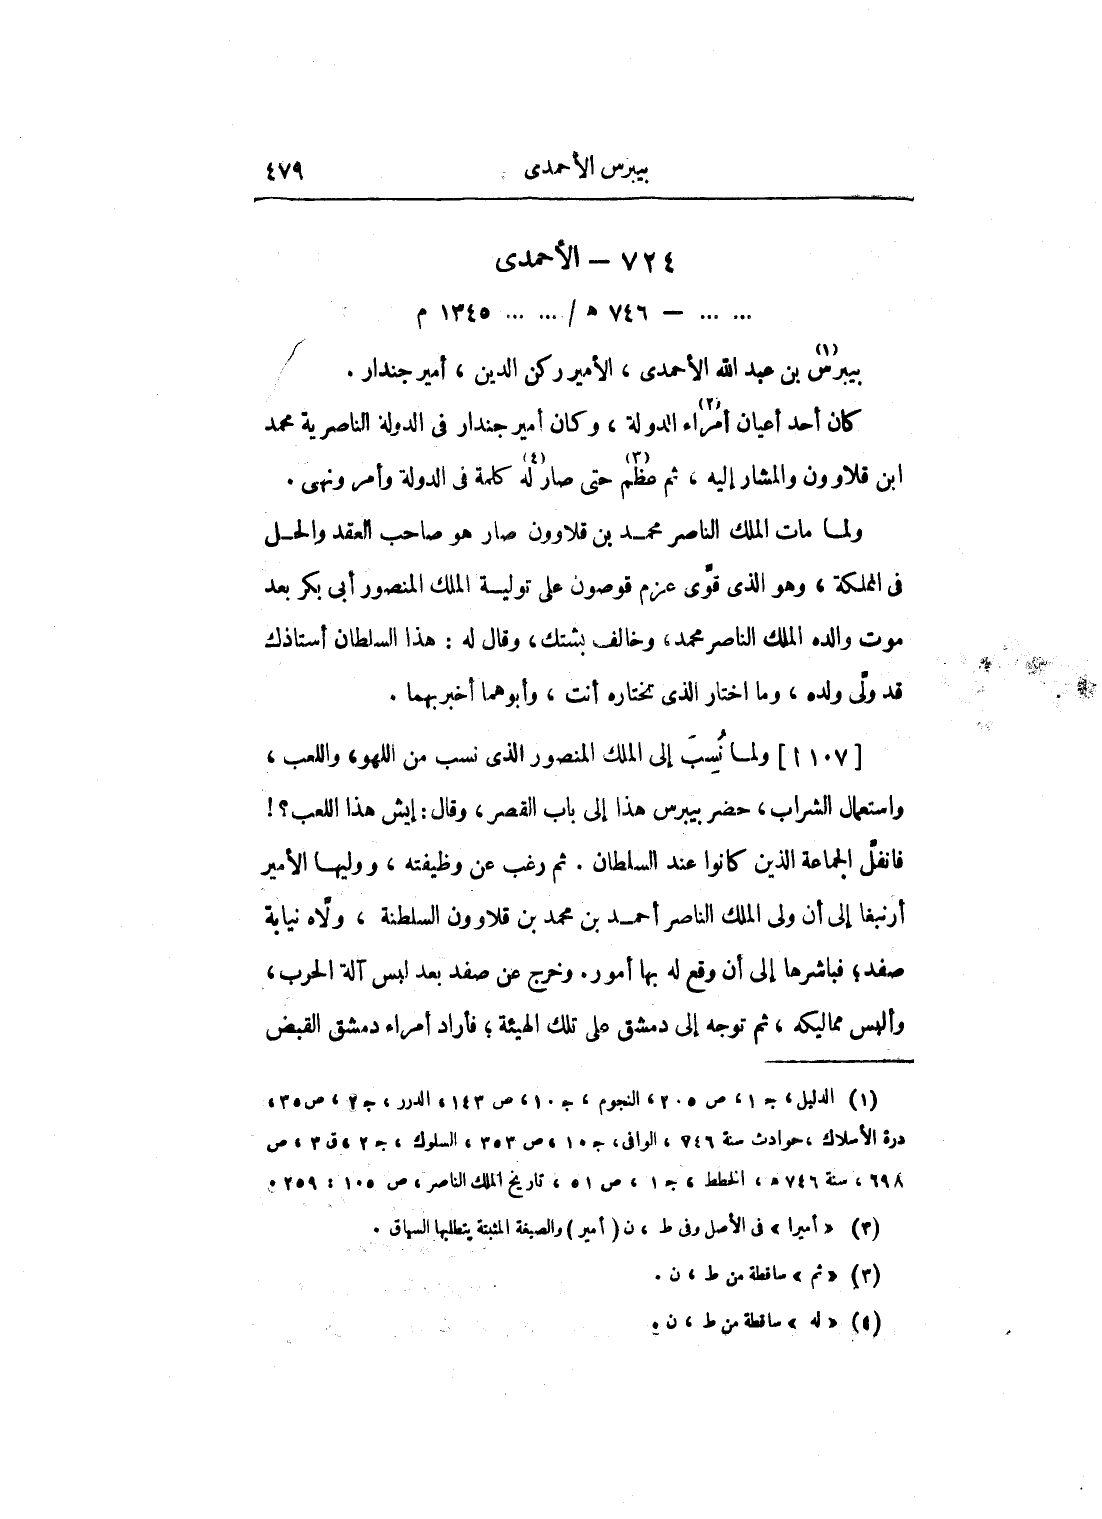 بيبرس الأحمدى ٤٧٩
٧٢٤ – الأحمدى
... ... – ٧٤٦ ه / ... ... ١٣٤٥ م
بيبرس(١) بن عبد الله الأحمدى ، الأمير ركن الدين ، أمير جندار .
كان أحد أعيان أمراء(٢) الدولة ، وكان أمير جندار فى الدولة الناصرية محمد
ابن قلاوون والمشار إليه ، ثم(٣) عظم حتى صار له(٤) كلمة فى الدولة وأمر ونهى .
ولما مات الملك الناصر محمد بن قلاوون صار هو صاحب العقد والحل
فى المملكة ، وهو الذى قوَّى عزم قوصون على تولية الملك المنصور أبى بكر بعد
موت والده الملك الناصر محمد ، وخالف بشتك ، وقال له : هذا السلطان أستاذك
قد ولَّى ولده ، وما اختار الذى تختاره أنت ، وأبوهما أخبر بهما .
[ ١٠٧ أ ] ولما نُسِبَ إلى الملك المنصور الذى نسب من اللهو ، واللعب ،
واستعمال الشراب ، حضر بيبرس هذا إلى باب القصر ، وقال : إيش هذا اللعب ؟ !
فانفلَّ الجماعة الذين كانوا عند السلطان . ثم رغب عن وظيفته ، ووليها الأمير
أرنبغا إلى أن ولى الملك الناصر أحمد بن محمد بن قلاوون السلطنة ، ولّاه نيابة
صفد ؛ فباشرها إلى أن وقع له بها أمور . وخرج عن صفد بعد لبس آلة الحرب ،
وألبس مماليكه ، ثم توجه إلى دمشق على تلك الهيئة ؛ فأراد أمراء دمشق القبض
(١) الدليل ، ج ١ ، ص ٢٠٥ ، النجوم ، ج ١٠ ، ص ١٤٣ ، الدرر ، ج ٢ ، ص ٣٥ ،
درة الأسلاك ، حوادث سنة ٧٤٦ ، الوافى ، ج ١٠ ، ص ٣٥٣ ، السلوك ، ج ٢ ، ق ٣ ، ص
٦٩٨ ، سنة ٧٤٦ ه ، الخطط ، ج ١ ، ص ٥١ ، تاريخ الملك الناصر ، ص ١٠٥ ؛ ٢٥٩ .
(٢) « أميرا » فى الأصل وفى ط ، ن ( أمير ) والصيغة المثبتة يتطلبها السياق .
(٣) « ثم » ساقطة من ط ، ن .
(٤) « له » ساقطة من ط ، ن .